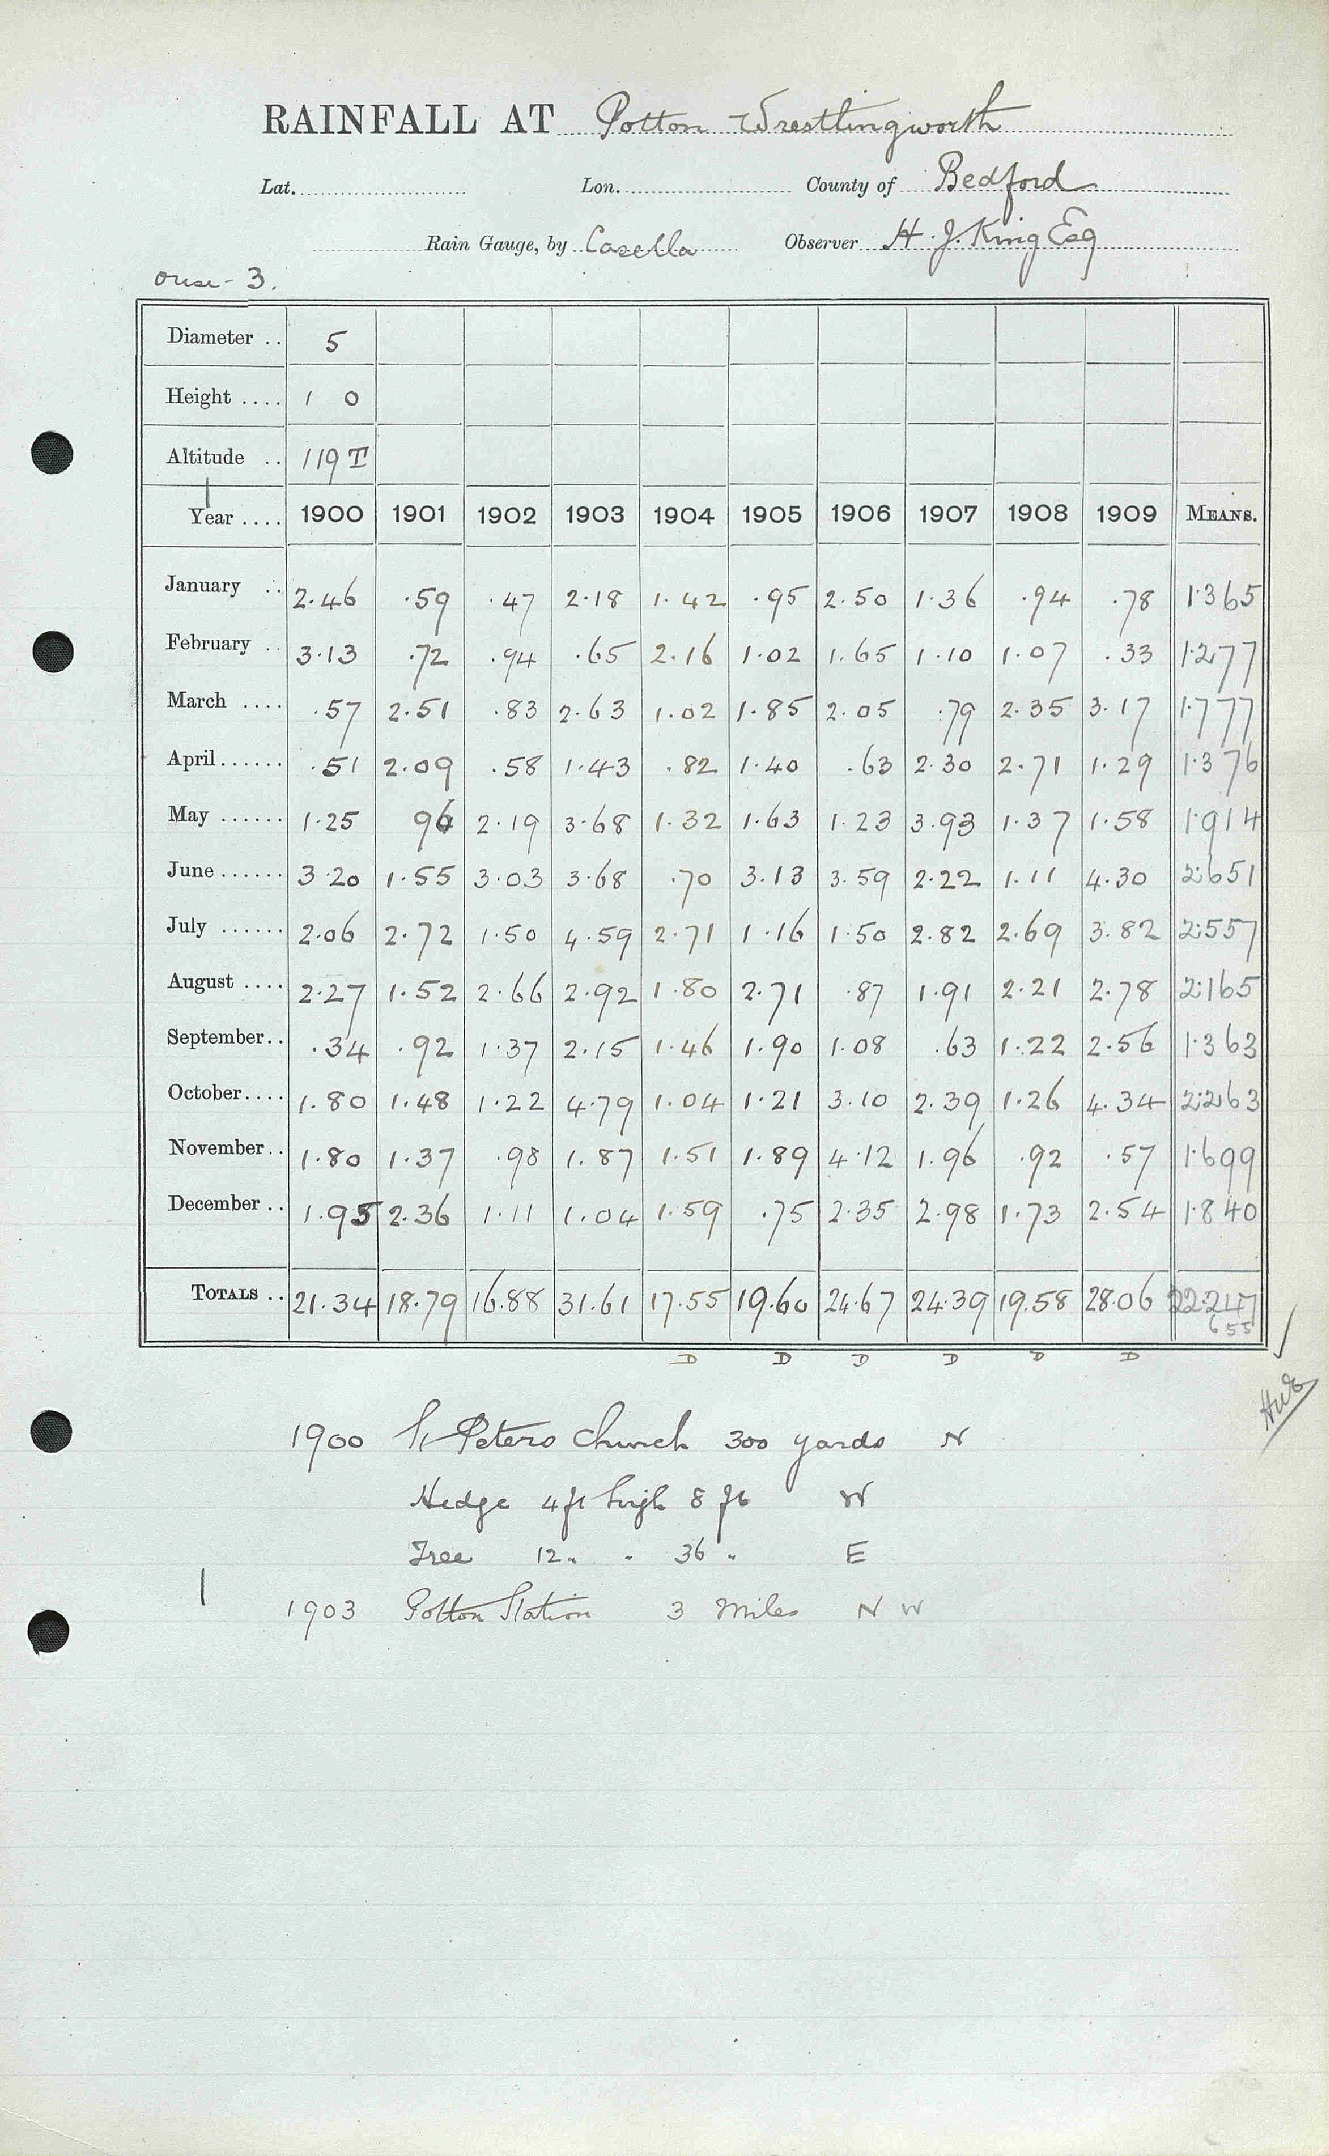 RAINFALL AT Potton Wrestlingworth
Lat. Lon. County of Bedford
Rain Gauge, by Casella Observer H. J. King Esq
Ouse - 3.
Diameter .. 5
Height .... 1 0
Altitude .. 119 T
Year .... 1900 1901 1902 1903 1904 1905 1906 1907 1908 1909 MEANS.
January .. 2.46 .59 .47 2.18 1.42 .95 2.50 1.36 .94 .78 1.365
February .. 3.13 .72 .94 .65 2.16 1.02 1.65 1.10 1.07 .33 1.277
March .... .57 2.51 .83 2.63 1.02 1.85 2.05 .79 2.35 3.17 1.777
April ...... .51 2.09 .58 1.43 .82 1.40 .63 2.30 2.71 1.29 1.376
May ...... 1.25 96 2.19 3.68 1.32 1.63 1.23 3.93 1.37 1.58 1.914
June ...... 3.20 1.55 3.03 3.68 .70 3.13 3.59 2.22 1.11 4.30 2.651
July ...... 2.06 2.72 1.50 4.59 2.71 1.16 1.50 2.82 2.69 3.82 2.557
August .... 2.27 1.52 2.66 2.92 1.80 2.71 .87 1.91 2.21 2.78 2.165
September .. .34 .92 1.37 2.15 1.46 1.90 1.08 .63 1.22 2.56 1.363
October .... 1.80 1.48 1.22 4.79 1.04 1.21 3.10 2.39 1.26 4.34 2.263
November .. 1.80 1.37 .98 1.87 1.51 1.89 4.12 1.96 .92 .57 1.699
December .. 1.95 2.36 1.11 1.04 1.59 .75 2.35 2.98 1.73 2.54 1.840
TOTALS .. 21.34 18.79 16.88 31.61 17.55 19.60 24.67 24.39 19.58 28.06 22.247
655
D D D D D D
1900 St Peters Church 300 yards N
Hedge 4 ft high 8 ft W
Tree 12 " " 36 " E
1903 Potton Station 3 Miles N W